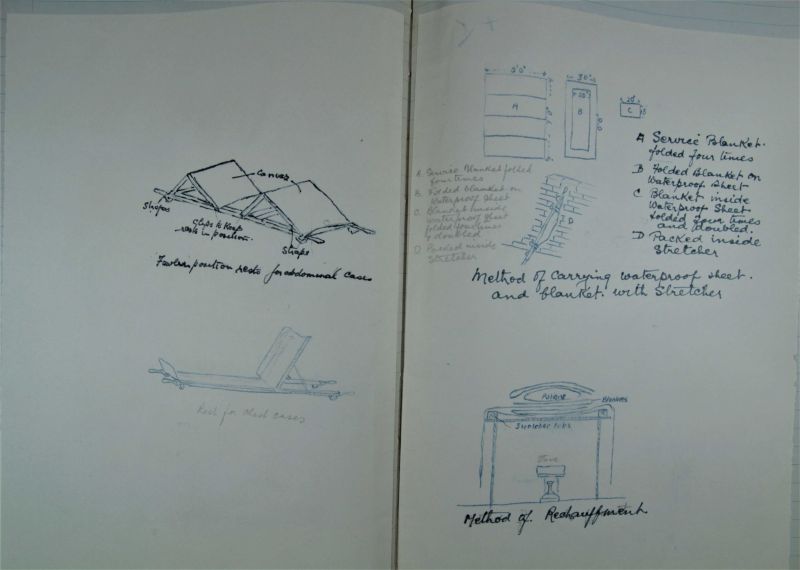 Canvas
Straps
Clips to keep
rests in position.
Straps
Fowler position rests for abdominal cases
Rest for chest cases
6'0"
A
30"
B
C
A Service Blanket folded
four times
B Folded blanket on
Waterproof Sheet
C Blanket inside
waterproof sheet
folded four times
& doubled
D Packed inside
Stretcher
D
A Service Blanket.
folded four times
B Folded Blanket on
Waterproof Sheet
C Blanket inside
Waterproof Sheet
folded four times
and doubled.
D Packed inside
Stretcher
Method of Carrying waterproof sheet.
and blanket. with Stretcher
Patient
Blankets
Stretcher Poles
Stove
Method of Rechauffment.